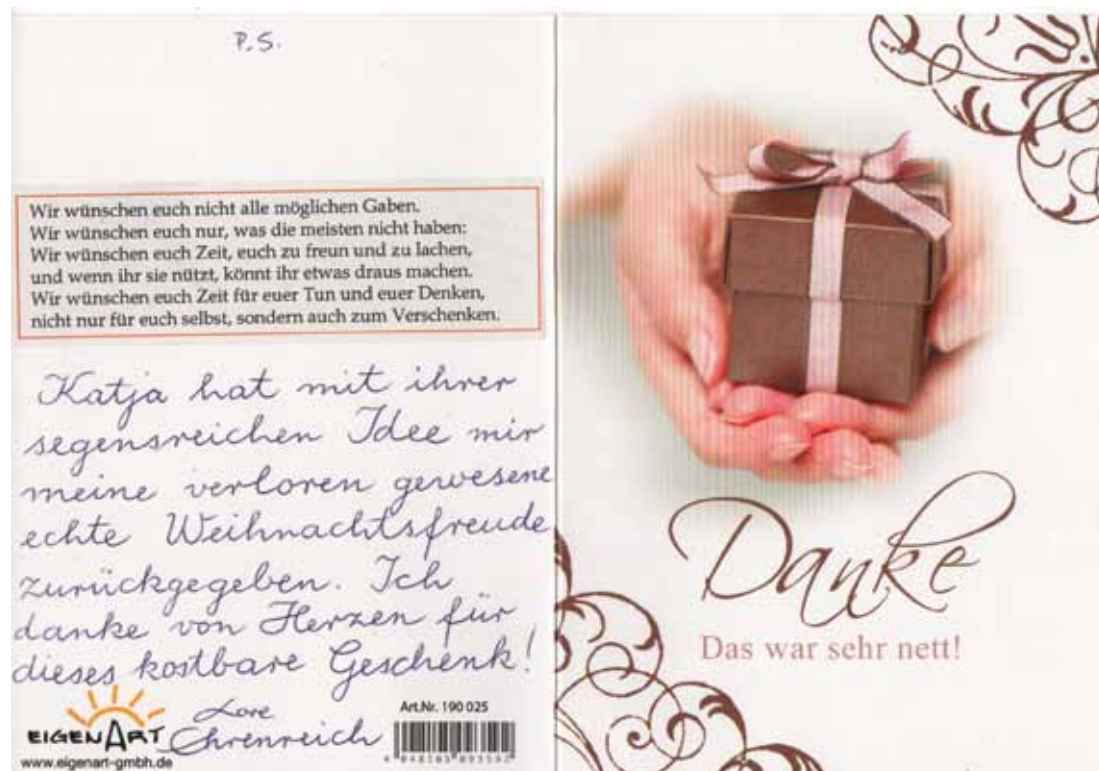 P.S.
Wir wünschen euch nicht alle möglichen Gaben.
Wir wünschen euch nur, was die meisten nicht haben:
Wir wünschen euch Zeit, euch zu freun und zu lachen,
und wenn ihr sie nützt, könnt ihr etwas draus machen.
Wir wünschen euch Zeit für euer Tun und euer Denken,
nicht nur für euch selbst, sondern auch zum Verschenken.
Katja hat mit ihrer
segensreichen Idee mir
meine verloren gewesene
echte Weihnachtsfreude
zurückgegeben. Ich
danke von Herzen für
dieses kostbare Geschenk!
Lore
Ehrenreich
EIGENART
www.eigenart-gmbh.de
Art.Nr. 190 025
Danke
Das war sehr nett!